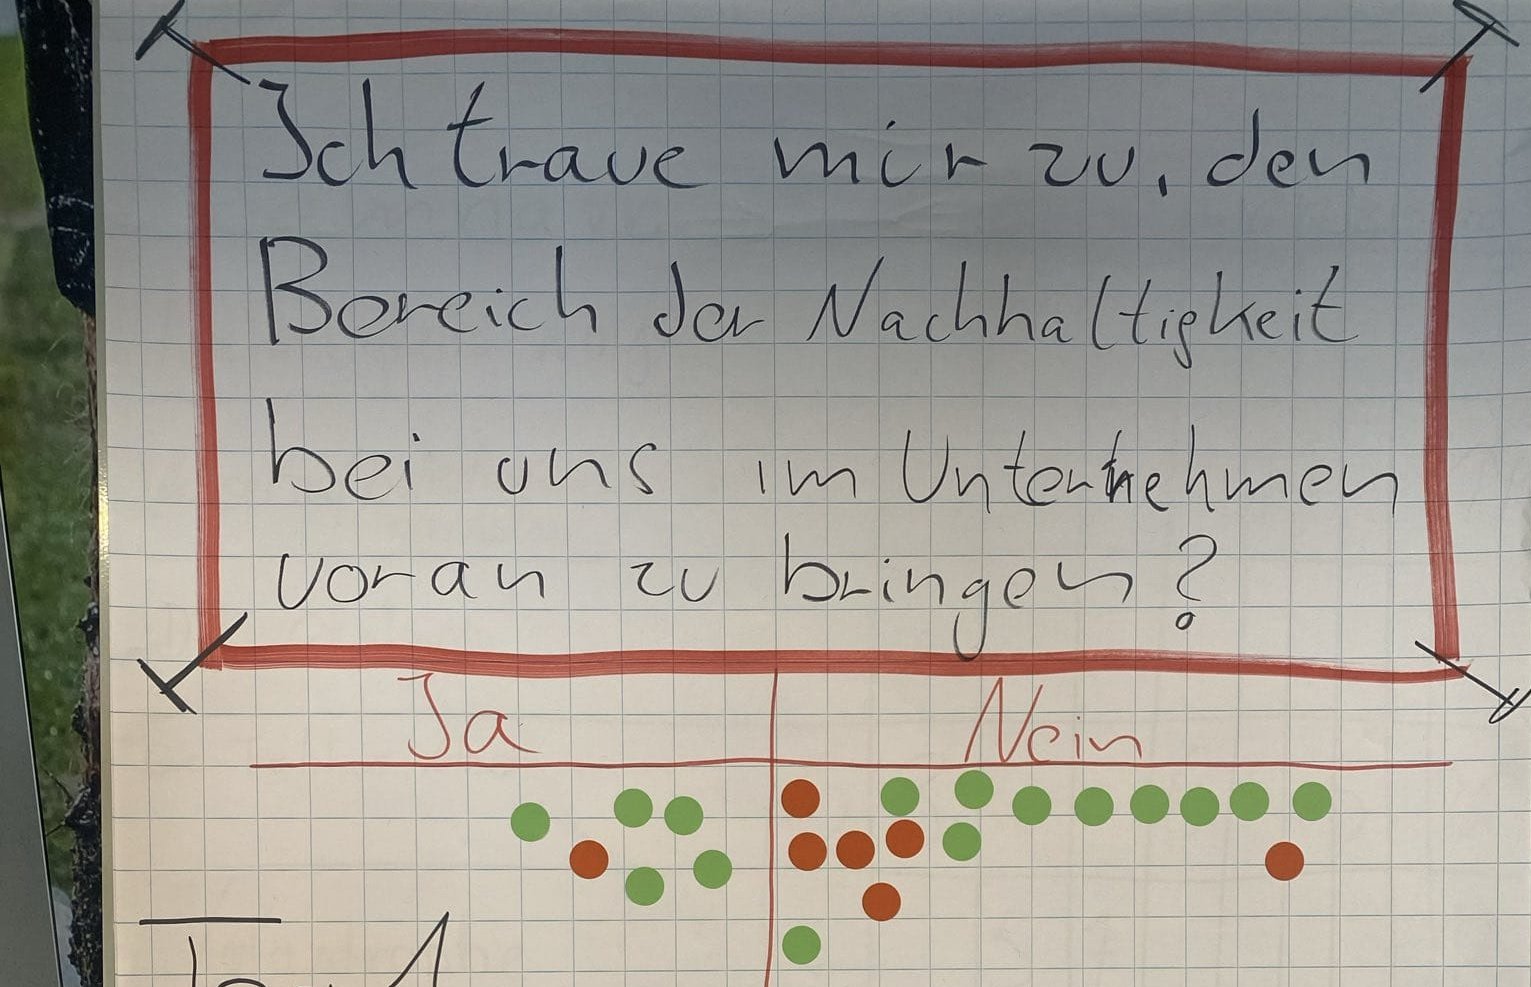 Ich traue mir zu, den
Bereich der Nachhaltigkeit
bei uns im Unternehmen
voran zu bringen?
Ja
Nein